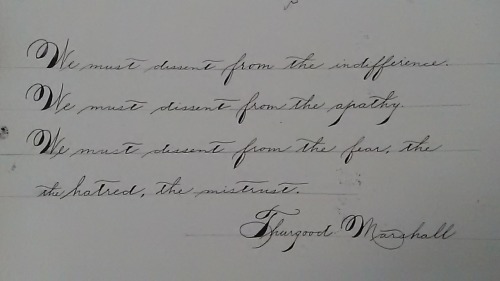 We must dissent from the indifference.
We must dissent from the apathy
We must dissent from the fear, the
the hatred, the mistrust.
Thurgood Marshall